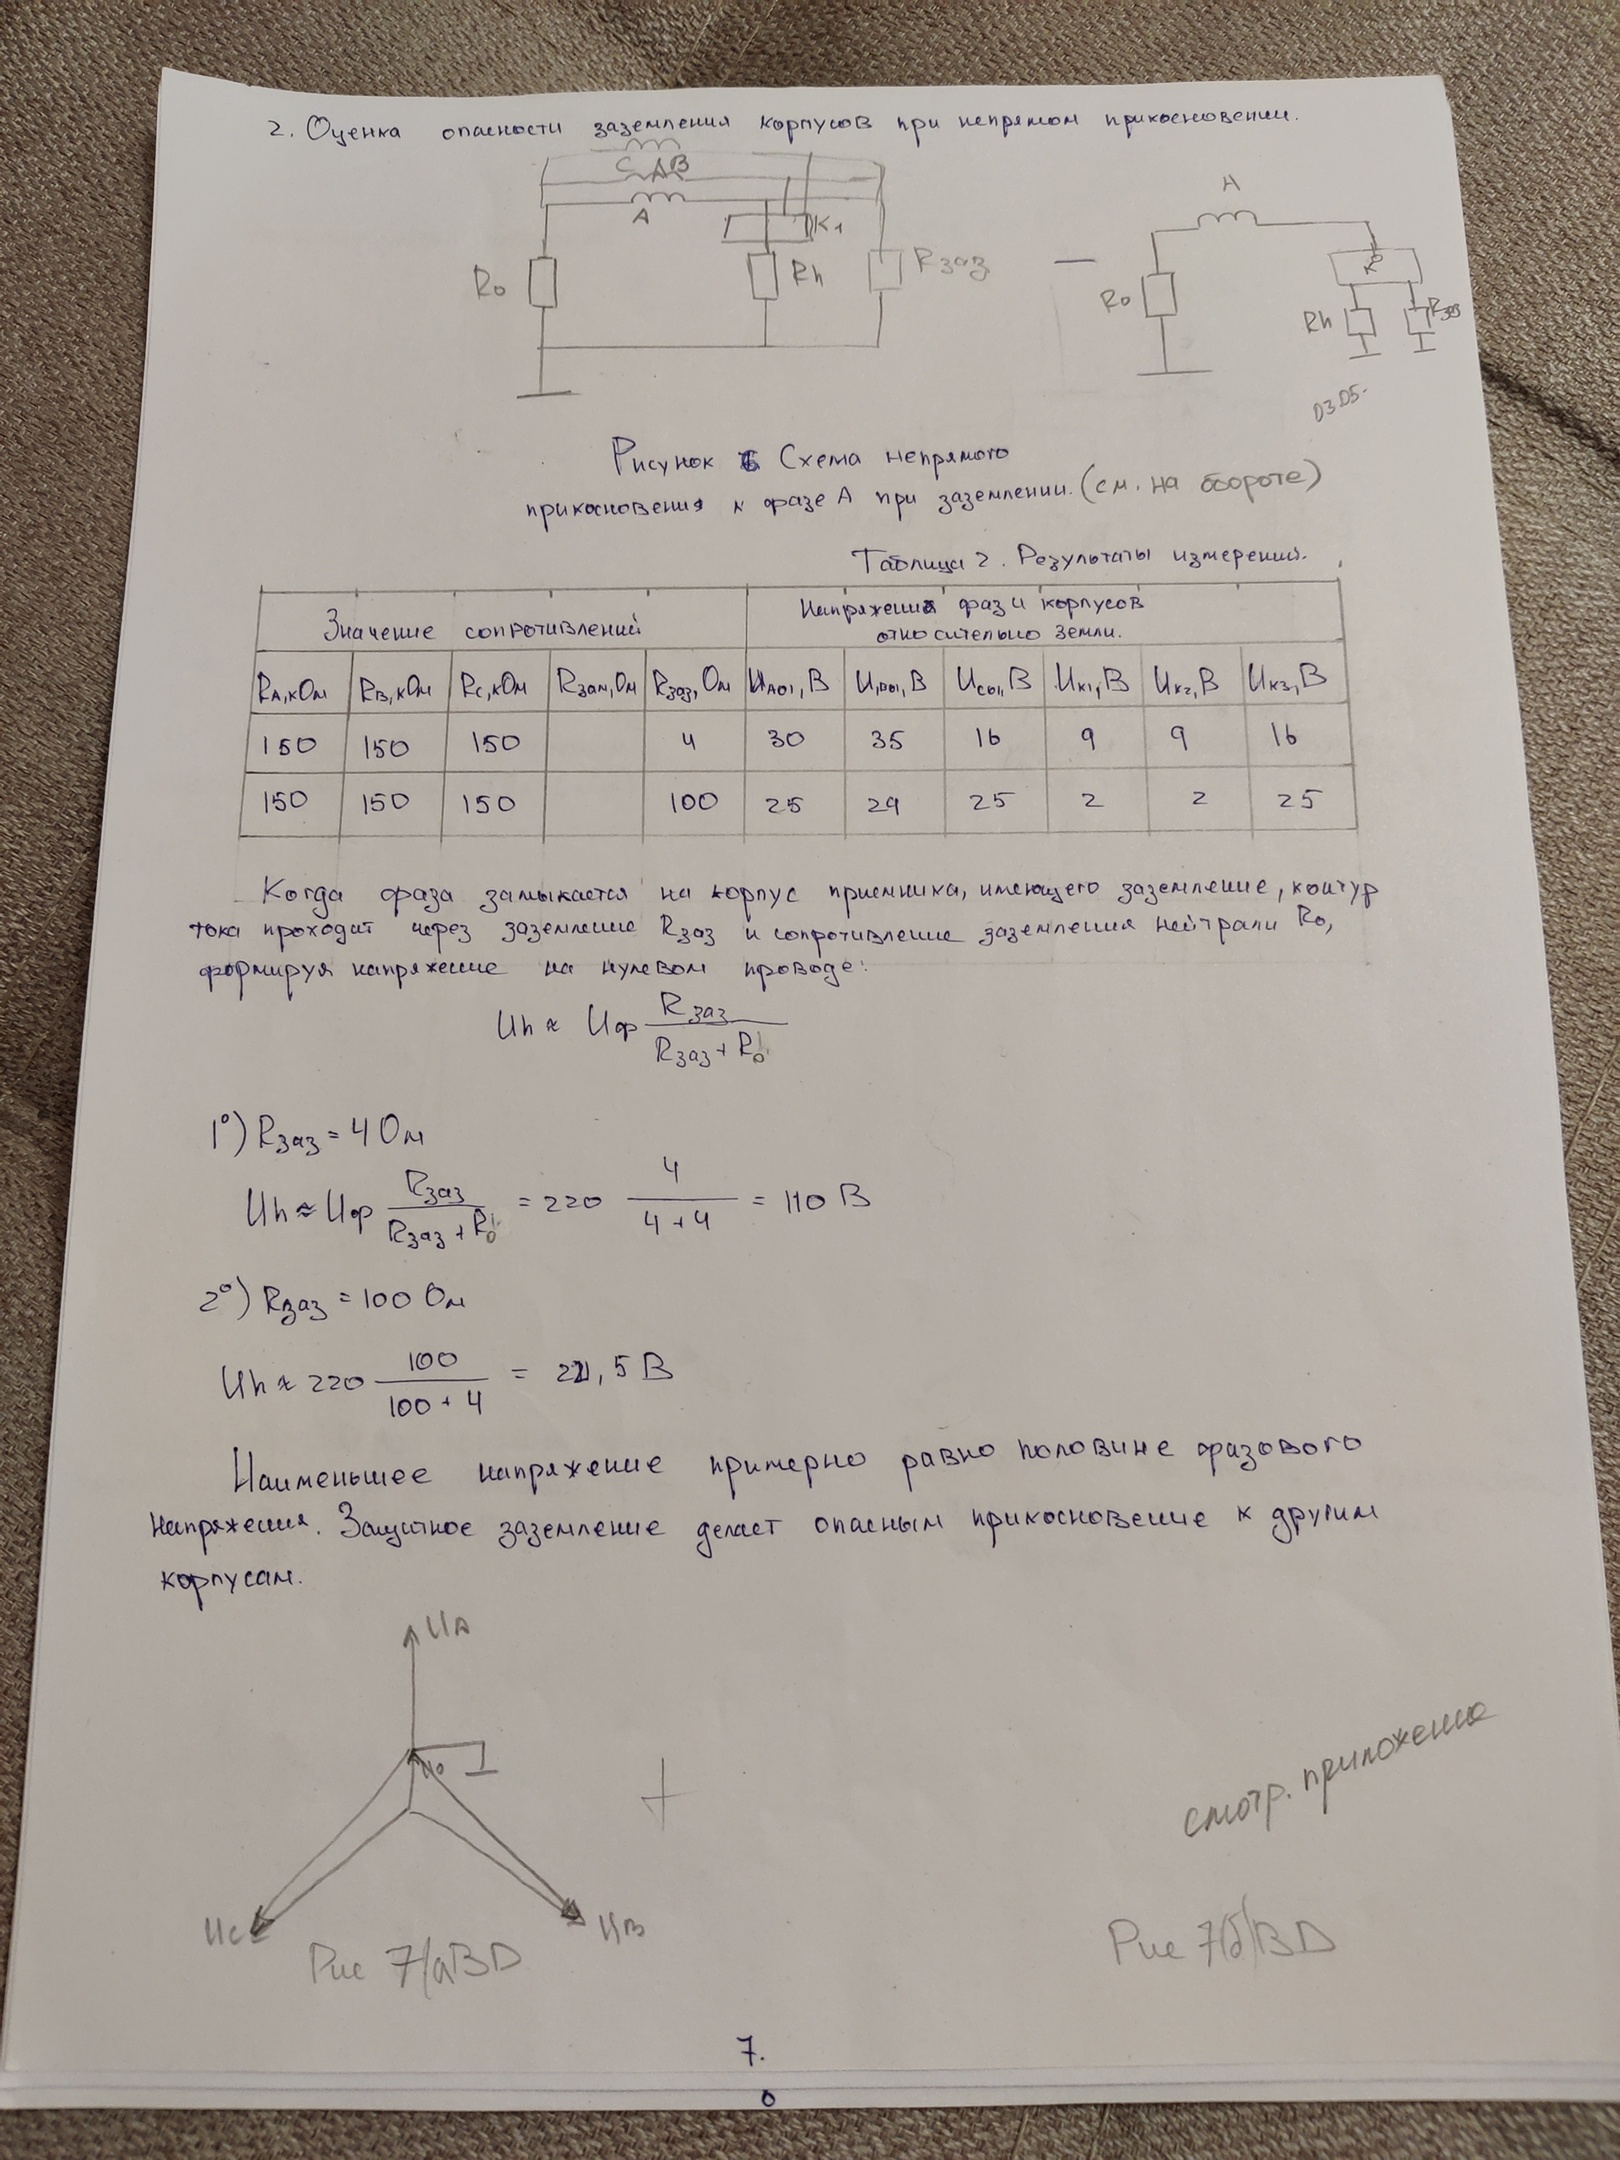 2. Оценка опасности заземления корпусов при непрямом прикосновении.
C AB
A
K1
R0
Rh
Rзаз
A
R0
K
Rh
Rзаз
03.05.
Рисунок 6 Схема непрямого
прикосновения к фазе A при заземлении. (см. на обороте)
Таблица 2. Результаты измерений.
Значение сопротивлений
Напряжения фаз и корпусов
относительно земли.
RA, кОм RB, кОм RC, кОм Rзам, Ом Rзаз, Ом UA01, В UB01, В UC01, В UK1, В UK2, В UK3, В
150 150 150 4 30 35 16 9 9 16
150 150 150 100 25 29 25 2 2 25
Когда фаза замыкается на корпус приемника, имеющего заземление, контур
тока проходит через заземление Rзаз и сопротивление заземления нейтрали R0,
формируя напряжение на нулевом проводе:
Uh ≈ Uф Rзаз / (Rзаз + R0)
1°) Rзаз = 4 Ом
Uh ≈ Uф Rзаз / (Rзаз + R0) = 220 4 / (4 + 4) = 110 В
2°) Rзаз = 100 Ом
Uh ≈ 220 100 / (100 + 4) = 211,5 В
Наименьшее напряжение примерно равно половине фазового
напряжения. Защитное заземление делает опасным прикосновение к другим
корпусам.
UA
U0
UC
UB
Рис 7(а) ВD
смотр. приложение
Рис 7(б) ВD
7.
0